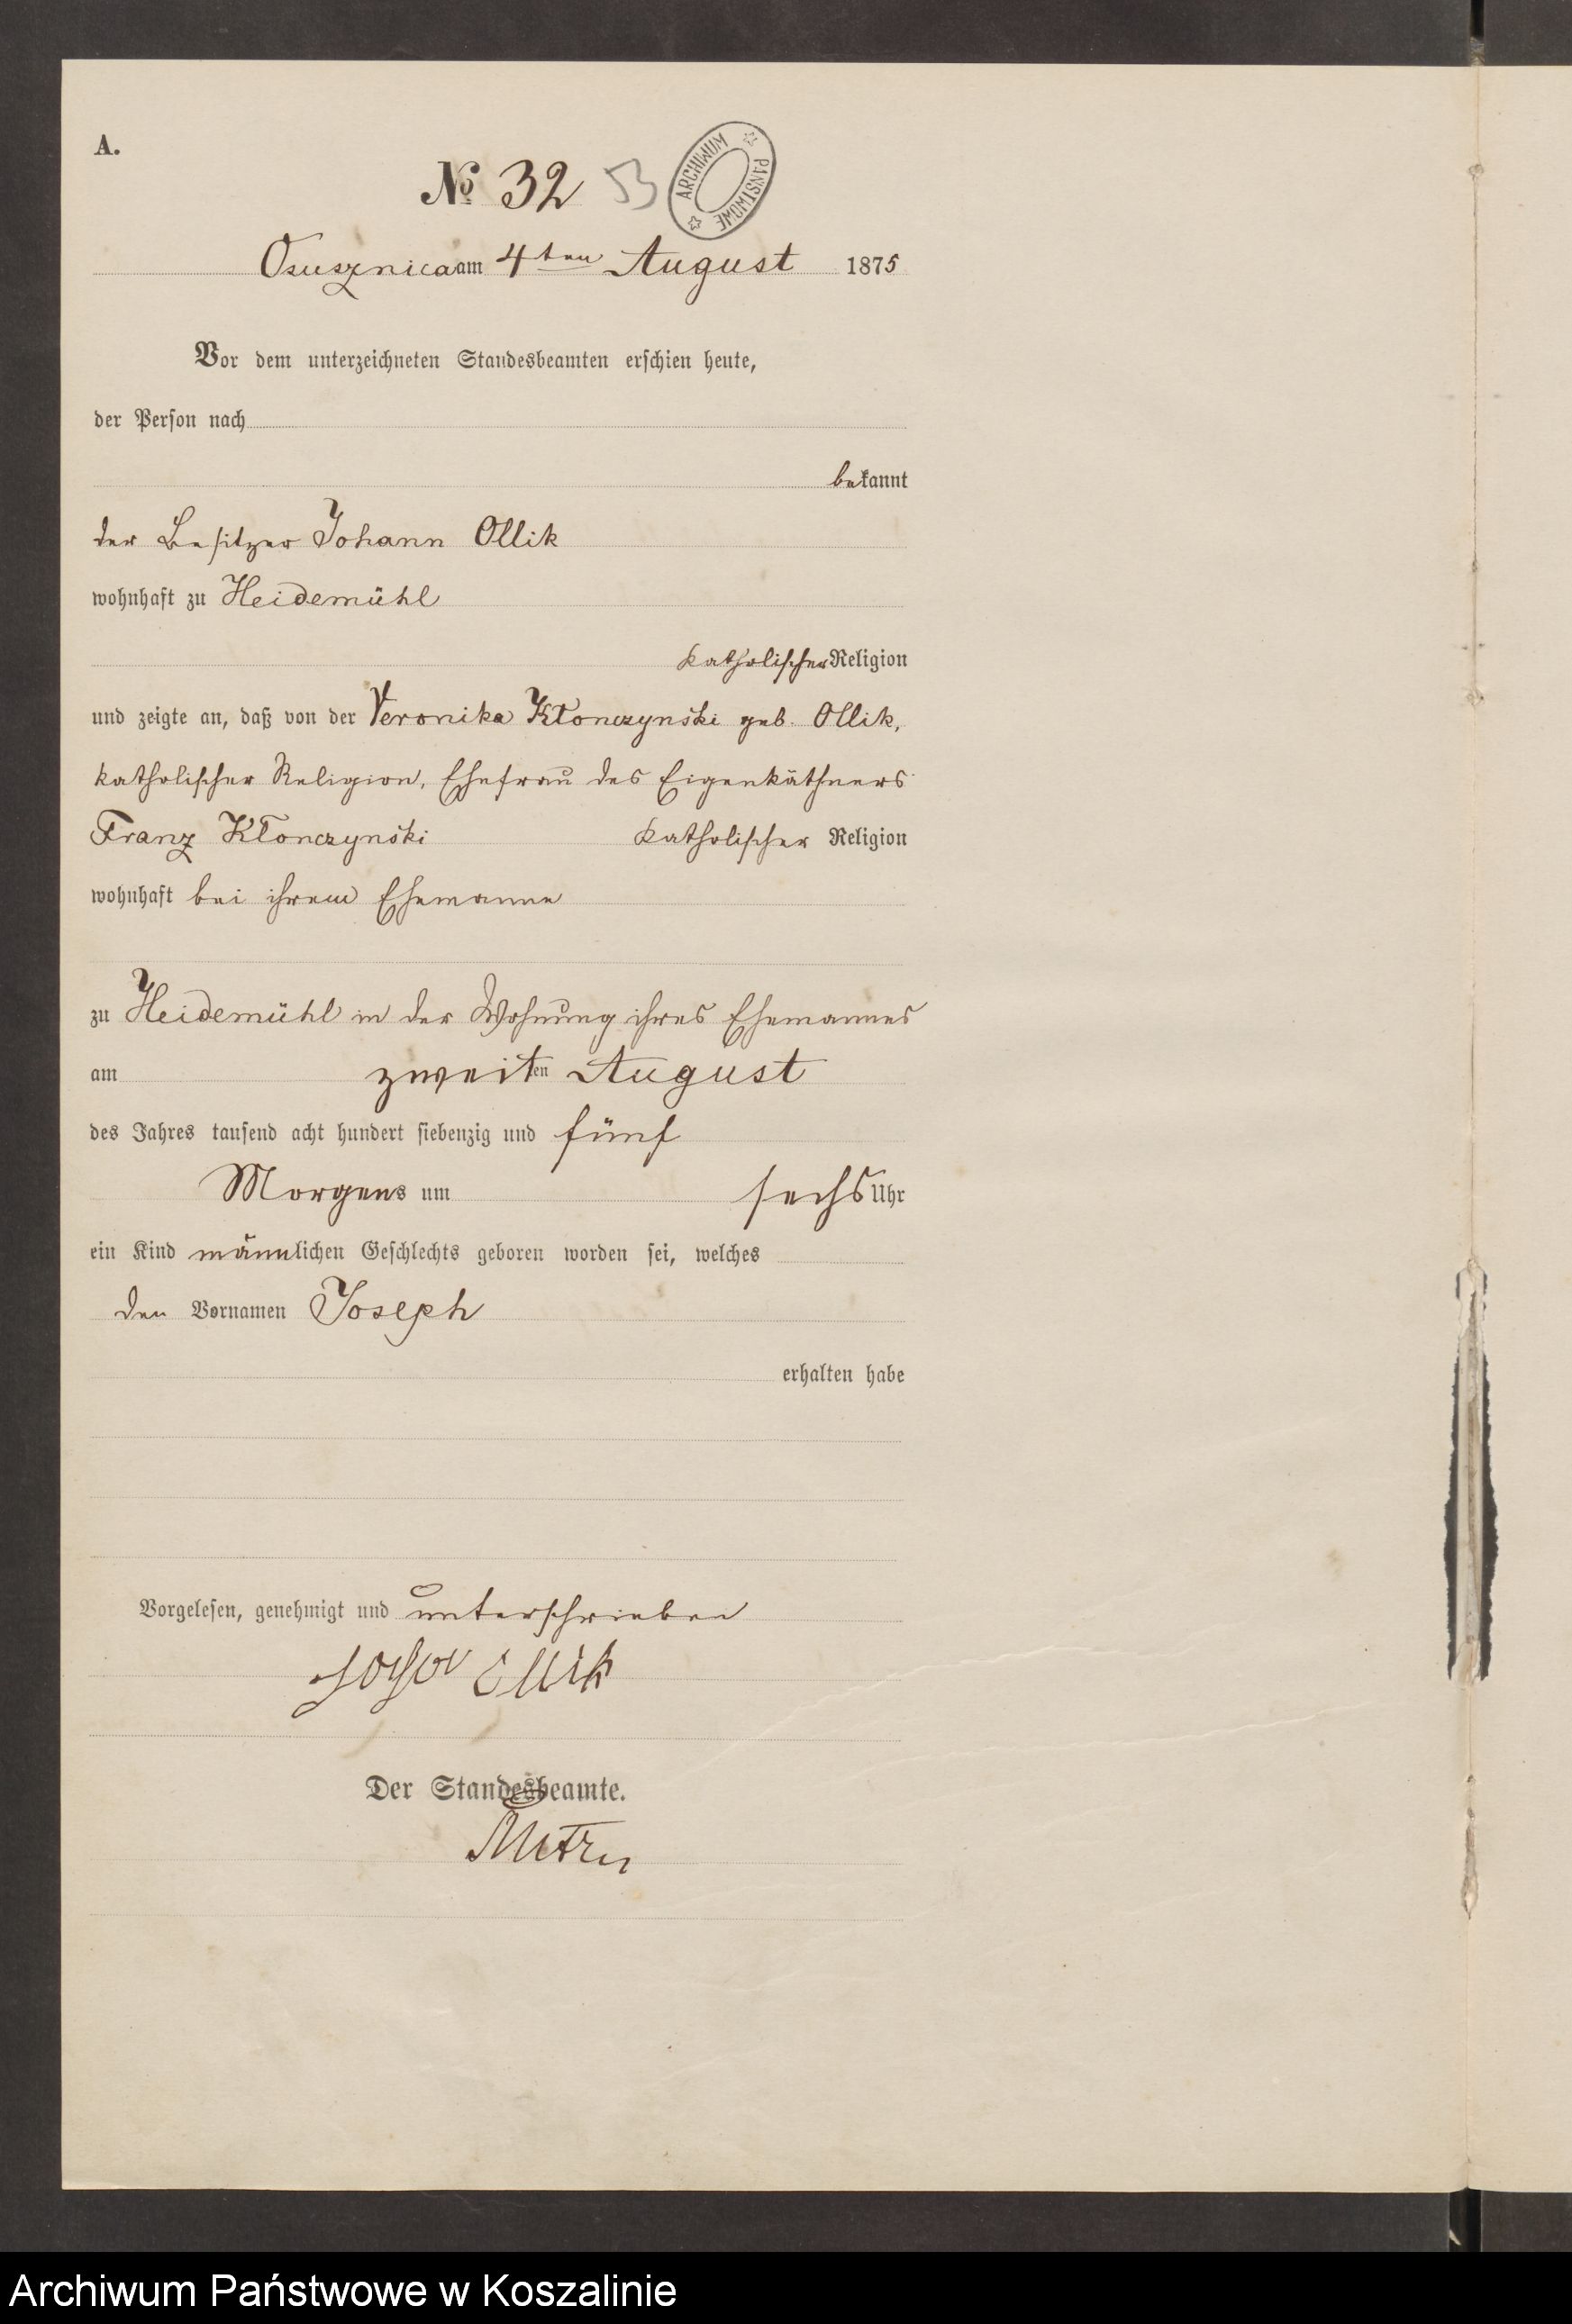 A.
№ 32 53
ARCHIWUM PAŃSTWOWE
Osusznica am 4ten August 1875
Vor dem unterzeichneten Standesbeamten erschien heute,
der Person nach
bekannt
der Besitzer Johann Ollik
wohnhaft zu Heidemühl
katholischer Religion
und zeigte an, daß von der Veronika Kłonczynski geb. Ollik,
katholischer Religion, Ehefrau des Eigenkäthners
Franz Kłonczynski katholischer Religion
wohnhaft bei ihrem Ehemanne
zu Heidemühl in der Wohnung ihres Ehemannes
am zweiten August
des Jahres tausend acht hundert siebenzig und fünf
Morgens um sechs Uhr
ein Kind männlichen Geschlechts geboren worden sei, welches
den Vornamen Joseph
erhalten habe
Vorgelesen, genehmigt und unterschrieben
Ollik
Der Standesbeamte.
Archiwum Państwowe w Koszalinie